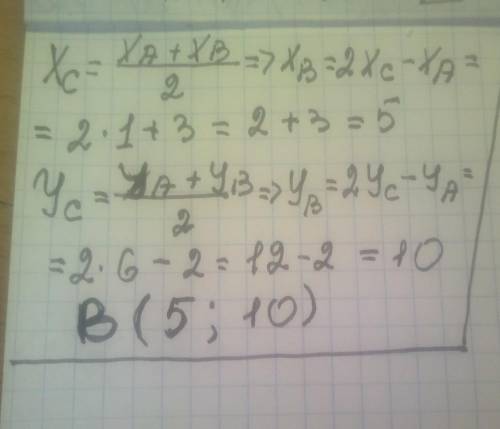 Xc = (XA + XB)/2 => XB = 2Xc - XA =
= 2·1 + 3 = 2 + 3 = 5
Yc = (YA + YB)/2 => YB = 2Yc - YA =
= 2·6 - 2 = 12 - 2 = 10
B (5; 10)